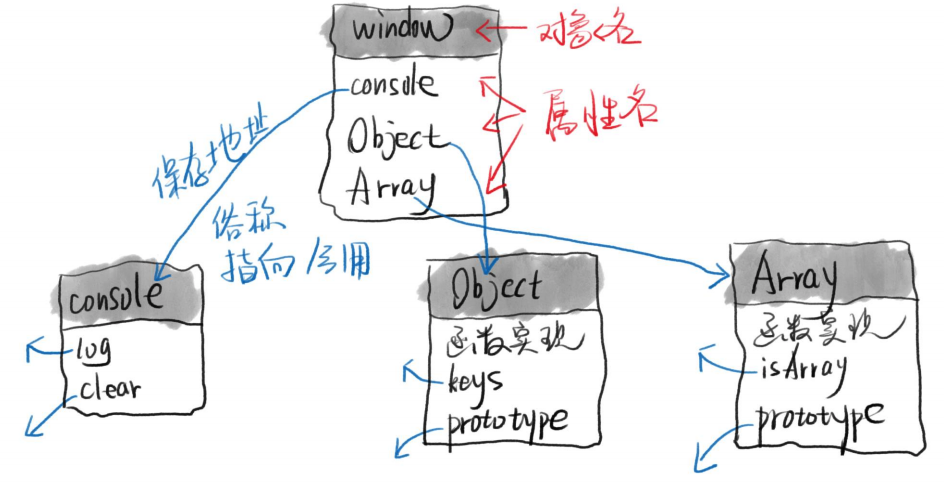 window
对象名
console
Object
Array
属性名
保存地址
俗称
指向/引用
console
log
clear
Object
函数实现
keys
prototype
Array
函数实现
isArray
prototype